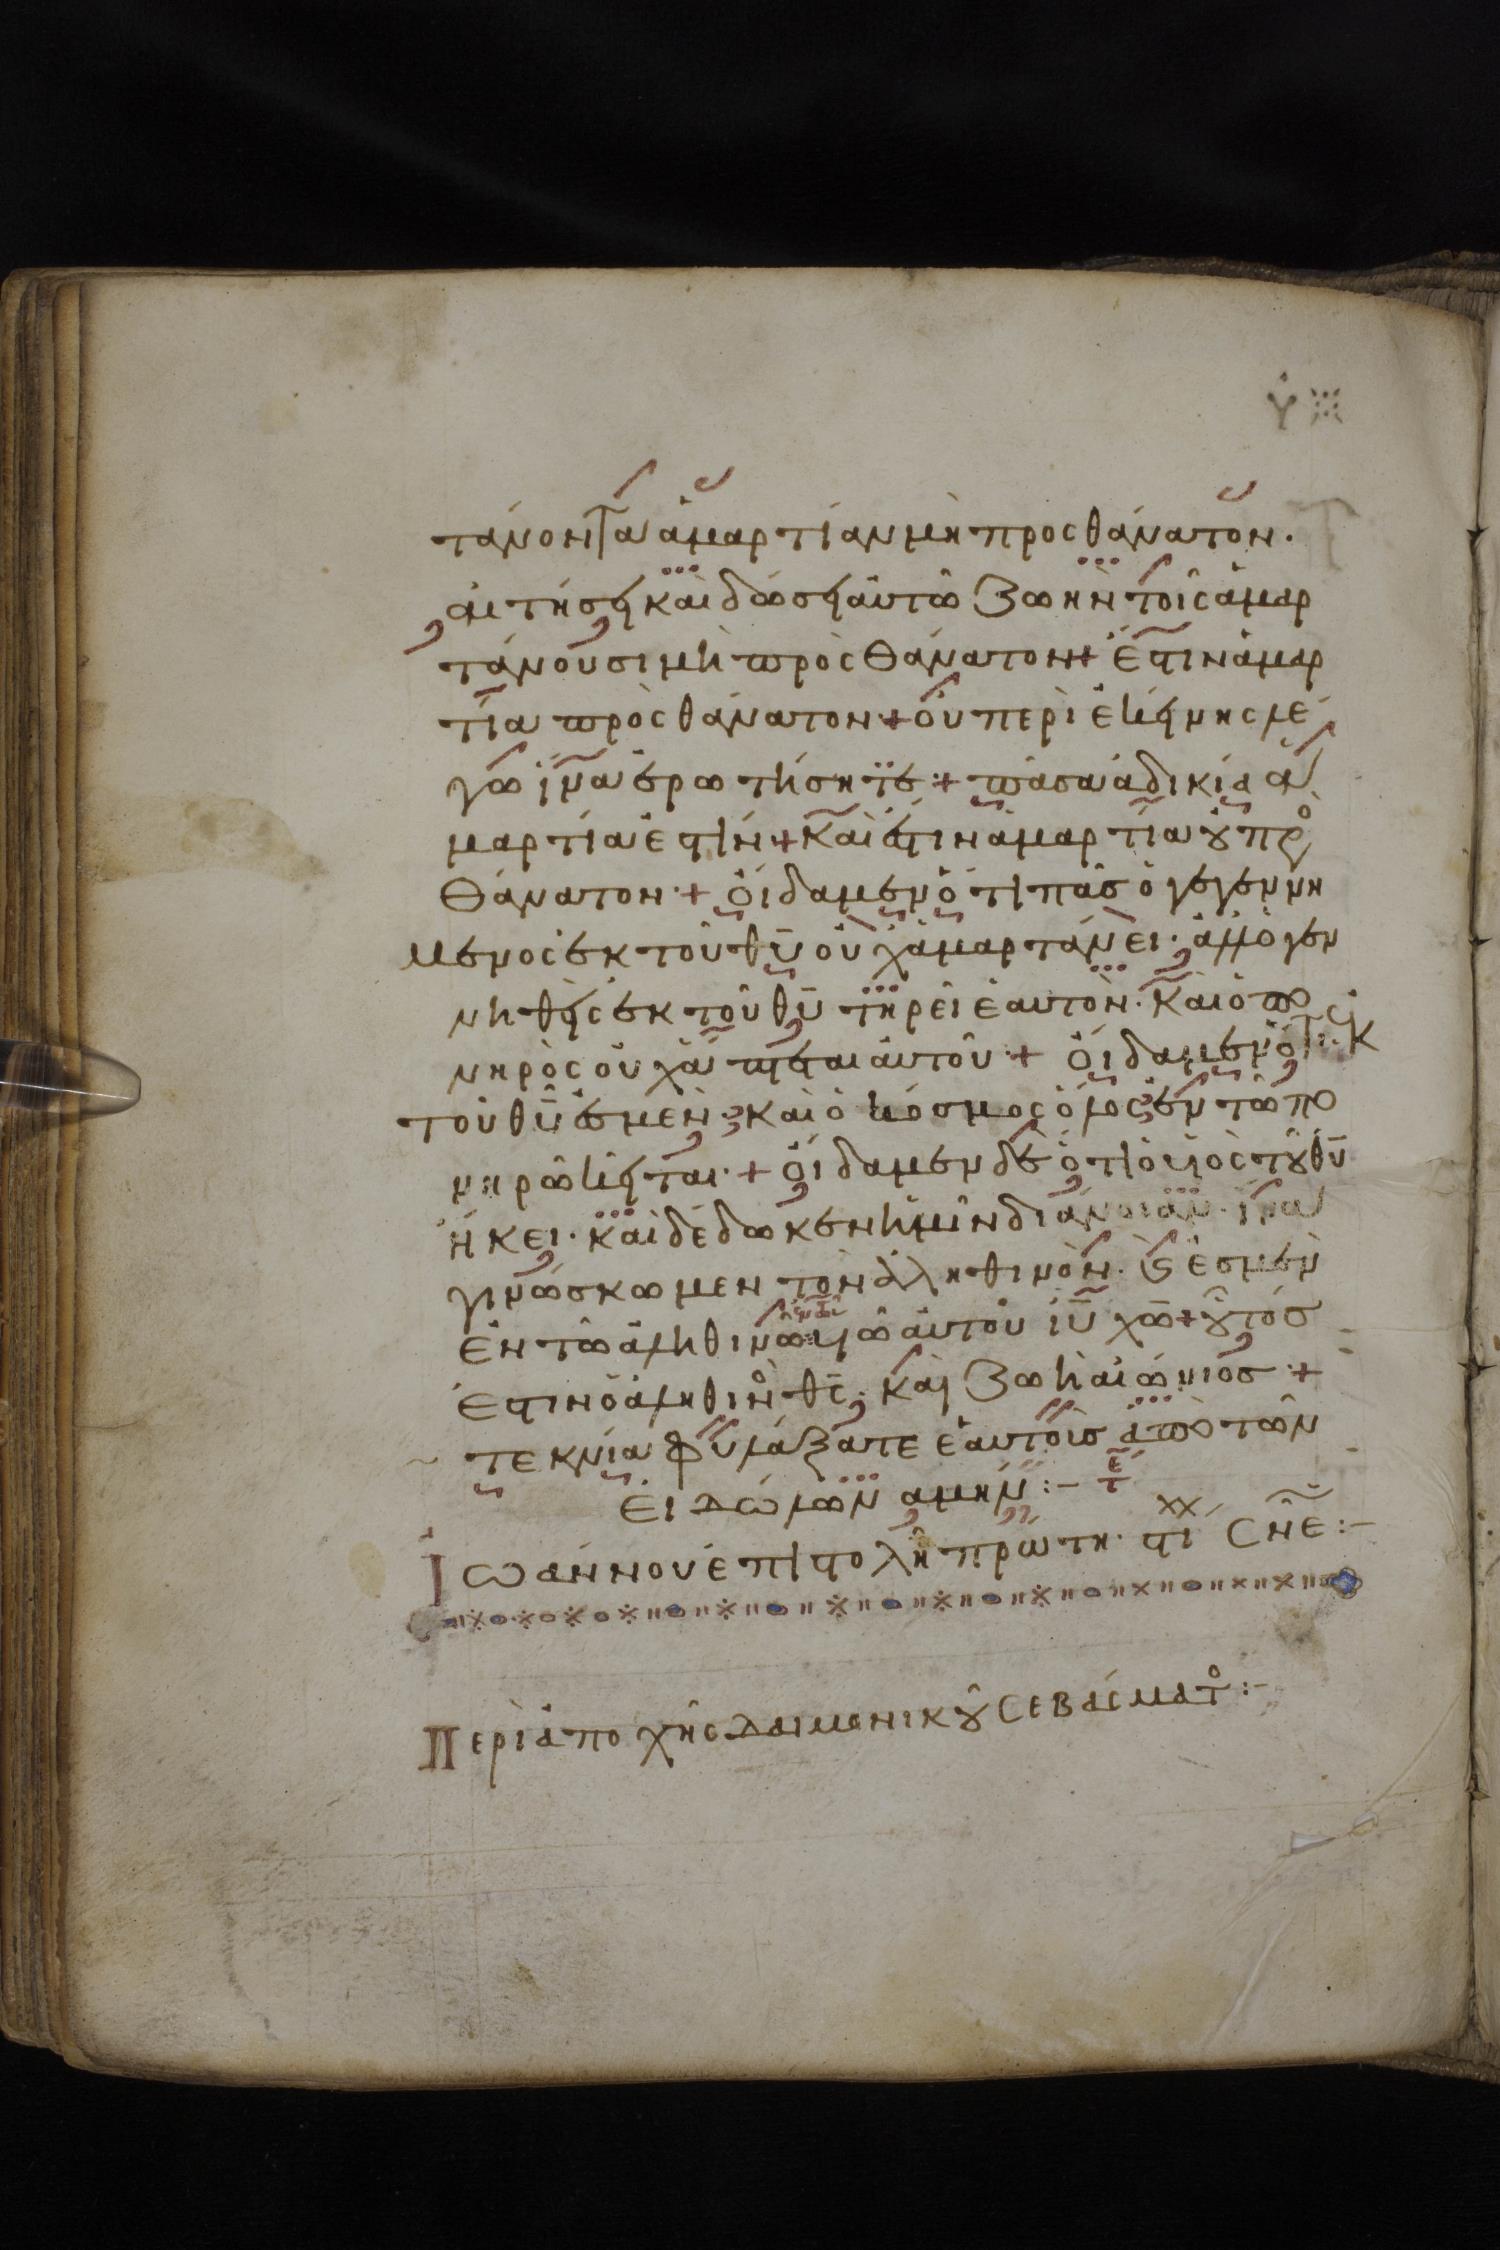 τάνοντα ἁμαρτίαν μὴ προς θάνατον.
αἰτήση καὶ δώση αὐτῶ ζωὴν τοῖς ἁμαρ
τάνουσι μὴ πρὸς θάνατον + ἔστιν ἁμαρ
τία πρὸς θάνατον + οὐ περὶ ἐκείνης λέ
γω ἵνα ἐρωτήσητε + πᾶσα ἀδικία ἁ
μαρτία ἐστίν + καὶ ἔστιν ἁμαρτία οὐ πρ
θάνατον · + οἴδαμεν ὅτι πᾶς ὁ γεγεννη
μένος ἐκ τοῦ θ̅υ̅ οὐχ ἁμαρτάνει · ἀλλ ὁ γεν
νηθεὶς ἐκ τοῦ θ̅υ̅ τηρεῖ ἑαυτὸν · καὶ ὁ πο
νηρὸς οὐχ ἅπτεται αὐτοῦ · + οἴδαμεν ὅτι ἐκ
τοῦ θ̅υ̅ ἐσμὲν · καὶ ὁ κόσμος ὅλος ἐν τῶ πο
νηρῶ κεῖται · + οἴδαμεν δὲ ὅτι ὁ υἱὸς τοῦ θ̅υ̅
ἥκει · καὶ δέδωκεν ἡμῖν διάνοιαν · ἵνα
γινώσκωμεν τὸν ἀληθινὸν · ϛ ἐσμὲν
ἐν τῶ ἀληθινῶ υἱῶ αὐτοῦ ι̅υ̅ χ̅ω̅ + οὗτός
ἐστιν ὁ ἀληθιν θ̅ς̅ · καὶ ζωὴ αἰώνιος · +
τεκνία φυλάξατε ἑαυτοὺς ἀπὸ τῶν
εἰδώλων αμην :–
Ἰωάννου ἐπιστολὴ πρώτη · στι ϲν̅ε̅ :–
Περὶ ἀποχῆς δαιμονικοῦ σεβάσματ :–